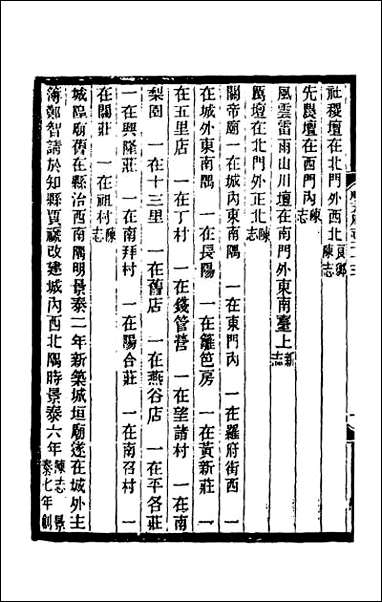 社稷壇在北門外西北良鄉陳志
先農壇在西門內陳志
風雲雷雨山川壇在南門外東南臺上新志
厲壇在北門外正北陳志
關帝廟一在城內東南隅 一在東門內 一在羅府街西 一
在城外東南隅 一在長陽 一在籬笆房 一在黃新莊 一
在五里店 一在丁村 一在錢管營 一在望諸村 一在南
梨園 一在十三里 一在舊店 一在燕谷店 一在平各莊
一在興隆莊 一在南拜村 一在陽合莊 一在南召村 一
在關莊 一在祖村陳志
城隍廟舊在縣治西南隅明景泰二年新築城垣廟遂在城外主
簿鄭智請於知縣賈禎改建城內西北隅時景泰六年陳志景泰七年創